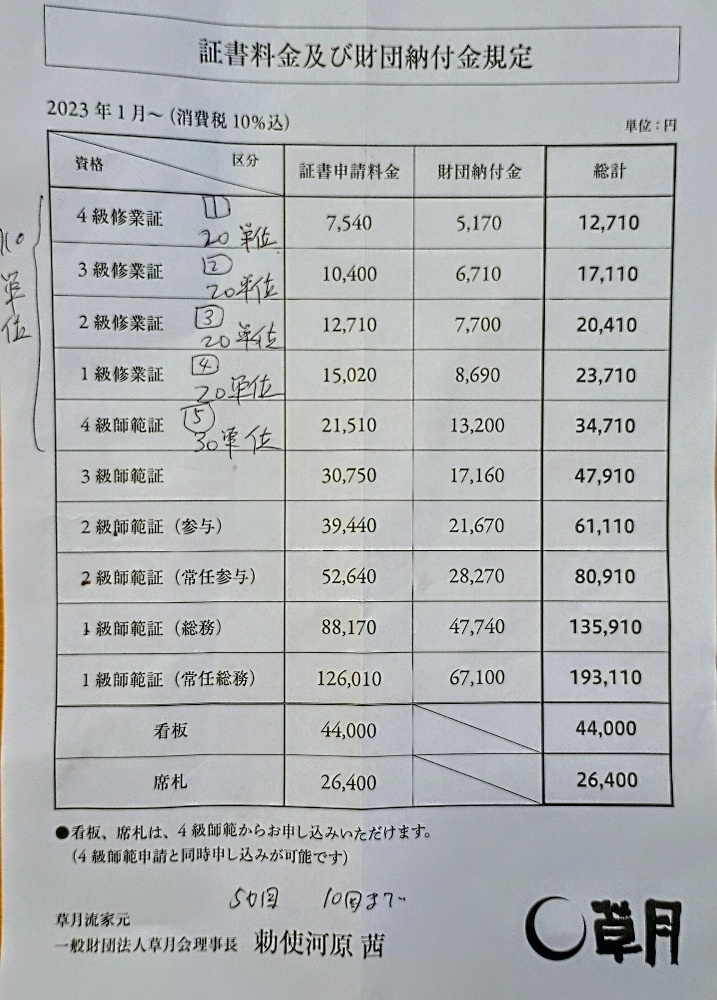 証書料金及び財団納付金規定
2023年1月～（消費税10%込）
単位：円
資格 区分 証書申請料金 財団納付金 総計
4級修業証 ① 20単位 7,540 5,170 12,710
3級修業証 ② 20単位 10,400 6,710 17,110
2級修業証 ③ 20単位 12,710 7,700 20,410
1級修業証 ④ 20単位 15,020 8,690 23,710
4級師範証 ⑤ 30単位 21,510 13,200 34,710
110単位
3級師範証 30,750 17,160 47,910
2級師範証（参与） 39,440 21,670 61,110
2級師範証（常任参与） 52,640 28,270 80,910
1級師範証（総務） 88,170 47,740 135,910
1級師範証（常任総務） 126,010 67,100 193,110
看板 44,000 44,000
席札 26,400 26,400
●看板、席札は、4級師範からお申し込みいただけます。
（4級師範申請と同時申し込みが可能です）
10回まで
草月流家元
一般財団法人草月会理事長 勅使河原 茜
草月